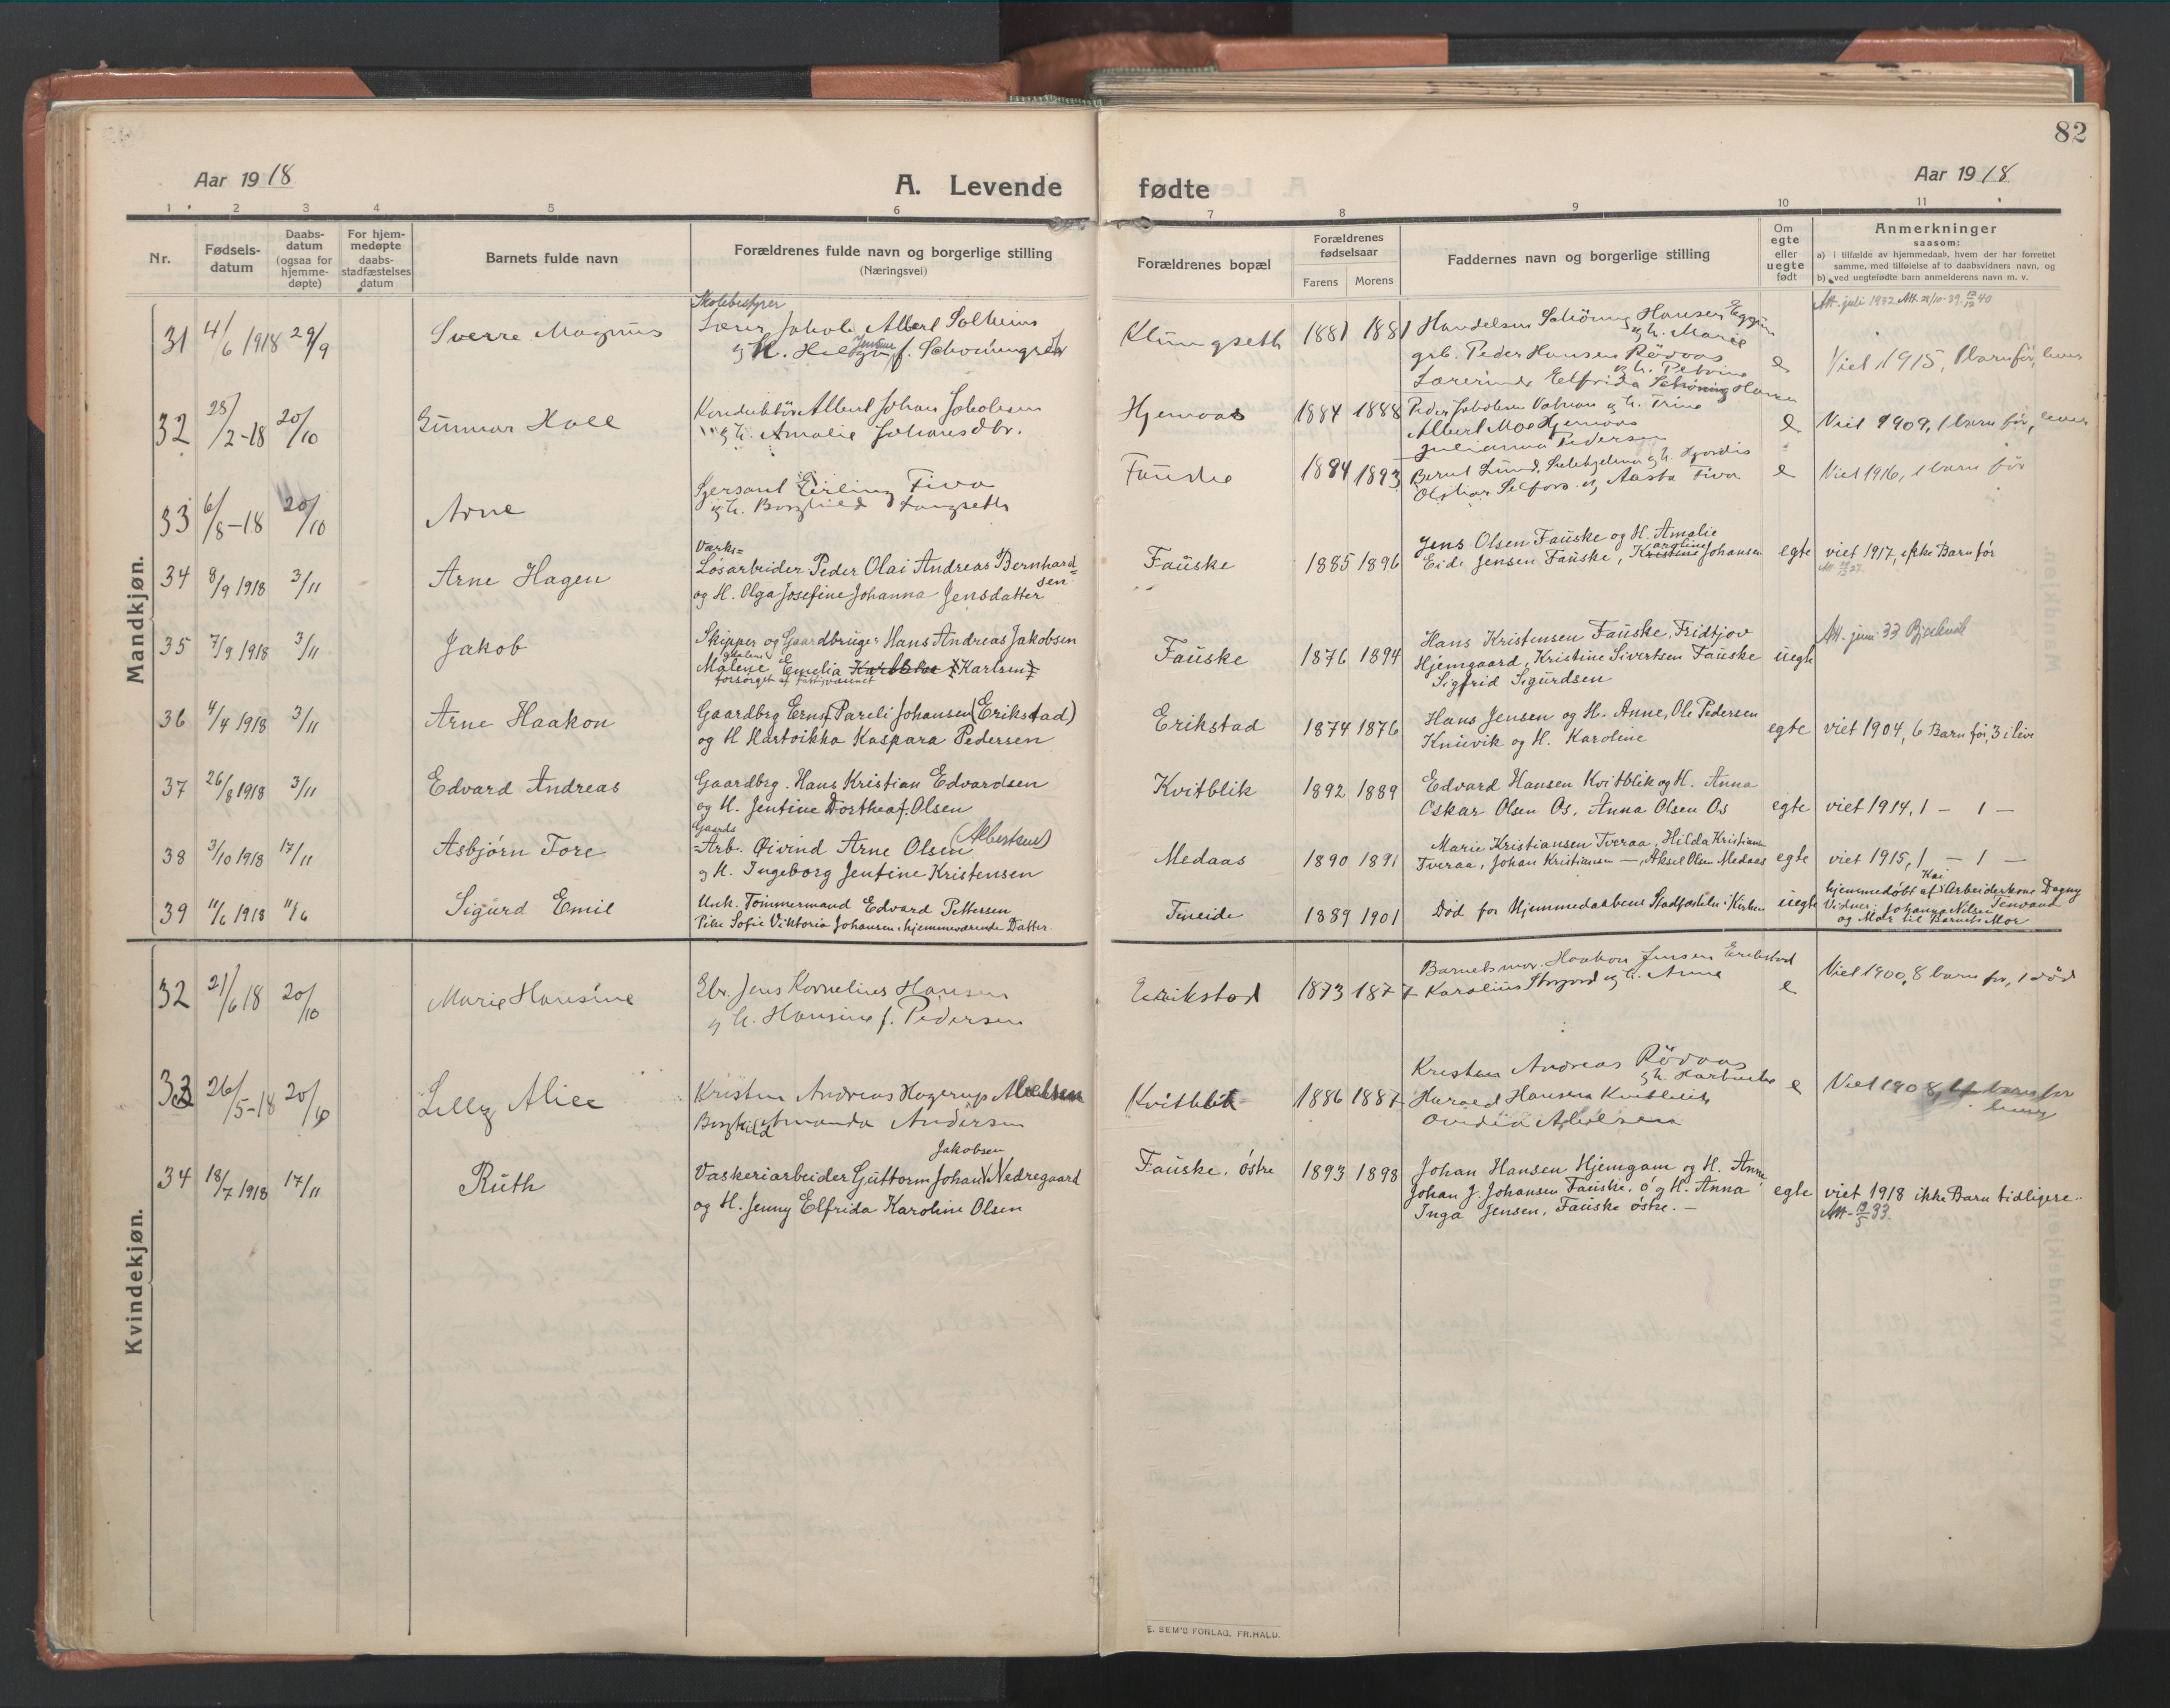 82
Aar 1918
A. Levende fødte
Aar 1918
1 2 3 4 5 6 7 8 9 10 11
Nr.
Fødsels-
datum
Daabs-
datum
(ogsaa for
hjemme-
døpte)
For hjem-
medøpte
daabs-
stadfæstelses
datum
Barnets fulde navn
Forældrenes fulde navn og borgerlige stilling
(Næringsvei)
Forældrenes bopæl
Forældrenes
fødselsaar
Farens Morens
Faddernes navn og borgerlige stilling
Om
egte
eller
uegte
født
Anmerkninger
saasom:
a) i tilfælde av hjemmedaab, hvem der har forrettet
samme, med tilføielse af to daabsvidners navn, og
b) ved uegtefødte barn anmelderens navn m. v.
Mandkjøn.
31 4/6 1918 29/9 Sverre Magnus
Skolebestyrer
Lærer Jakob Albert Solheim
og H. Helga Jentine f. Schøning
1881 1881
Schöning Hansen
og h. Marie
grb. Peder Hansen Rödaas
og h. Petrine
Lærerinde Elfrida Schöning Hansen
e
Viet 1915, 1 barn før, lever
32 28/2-18 20/10 Gunnar
Konduktör Albert Johan Jakobsen
og h. Amalie Johansdtr.
Hjemaas 1884 1888
Peder Jakobsen og h. Trine
Albert Moe Hjemaas
Julianna Pedersen
e
Viet 1909, 1 barn før, lever
33 6/8-18 20/10 Arne
Sersant Erling Fiva
og h. Borghild
Fauske 1884 1893
Bernt Lund, og h. Hjordis
og Aasta Fiva
e
Viet 1916, 1 barn før
34 8/9 1918 3/11 Arne Hagen
Værks=
Løsarbeider Peder Olai Andreas Bernhard=
sen
og H. Olga Josefine Johanna Jensdatter
Fauske 1885 1896
Jens Olsen Fauske og H. Amalie
Eide Jensen Fauske, Kristine Johansen
egte
viet 1917, ikke Barn før
35 7/9 1918 3/11 Jakob
Skipper og Gaardbruger Hans Andreas Jakobsen
Malene Emelia (Karlsen)
forsørget af
Fauske 1876 1894
Hans Kristensen Fauske, Fridtjov
Hjemgaard, Kristine Sivertsen Fauske
Sigfrid Sigurdsen
uegte
Att. juni 33
36 4/4 1918 3/11 Arne Haakon
Gaardbrg Ernst Pareli Johansen (Erikstad)
og H Hartvikka Kaspara Pedersen
Erikstad 1874 1876
Hans Jensen og H. Anne, Ole Pedersen
Knuvik og H. Karoline
egte
viet 1904, 6 Barn før, 3 i live
37 26/8 1918 3/11 Edvard Andreas
Gaardbrg. Hans Kristian Edvardsen
og H. Jentine Dorthea f. Olsen
Kvitblik 1892 1889
Edvard Hansen Kvitblik og H. Anna
Oskar Olsen Os, Anna Olsen Os
egte
viet 1914, 1 — 1 —
38 3/10 1918 17/11 Asbjørn Tore
Gaards
=Arb. Øivind Arne Olsen (Albertsen)
og H. Ingeborg Jentine Kristensen
Medaas 1890 1891
Marie Kristiansen Tveraa, Hilda Kristiansen
Tveraa, Johan Kristiansen —, Aksel Olsen Medaas
egte
viet 1915, 1 — 1 —
39 11/6 1918 11/6 Sigurd Emil
Unk. Tömmermand Edvard Pettersen
Pike Sofie Viktoria Johansen, hjemmeværende Datter.
Fineide 1889 1901
Død før Hjemmedaabens Stadfæstelse i Kirken
uegte
hjemmedøbt af Arbeiderkone Dagny
Vidner: Johanna Nilsen
og Mor til Barnets Mor
Kvindekjøn.
32 21/6 18 20/10 Marie Hansine
Gbr. Jens Kornelius Hansen
og h. Hansine f. Pedersen
Erikstad 1873 1877
Barnets mor. Haakon Jensen Erikstad
Karolius Storjord og h. Anna
e
Viet 1900, 8 barn før, 1 död
33 26/5-18 20/10 Lilly Alice
Kristen Andreas Hagerup
Borghild Amanda Andersen
Kvitblik 1886 1887
Kristen Andreas Rödaas
Harald Hansen Kvitblik
e
Viet 1908, barn før
34 18/7 1918 17/11 Ruth
Jakobsen
Vaskeriarbeider Guttorm Johan Nedregaard
og H. Jenny Elfrida Karoline Olsen
Fauske, østre 1893 1898
Johan Hansen Hjemgam og H. Anne
Johan J. Johansen Fauske. ö og H. Anna
Inga Jensen, Fauske østre. —
egte
viet 1918 ikke Barn tidligere..
Att. 19/5 33.
E. SEM'S FORLAG, FR.HALD.